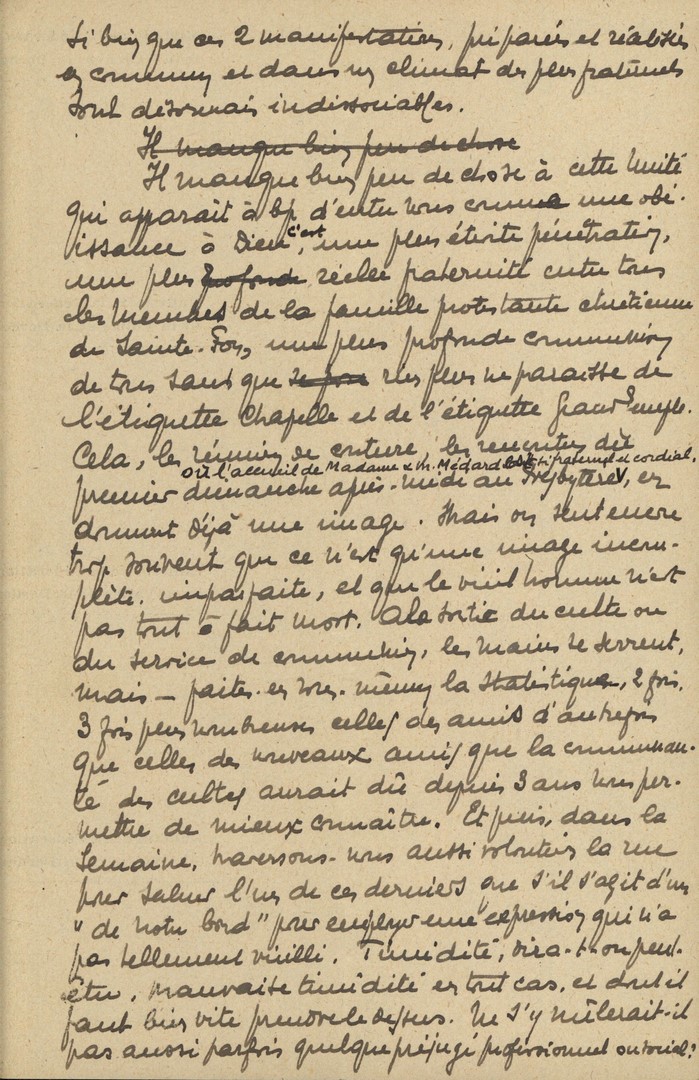 Si bien que ces 2 manifestations, préparées et réalisées
en commun et dans un climat des plus fraternels
sont désormais indissociables.
Il manque bien peu de chose
Il manque bien peu de chose à cette Unité
qui apparaît à bp d'entre nous comme une obé-
issance à Dieu, c'est une plus étroite pénétration,
une plus profonde réelle fraternité entre tous
les membres de la famille protestante chrétienne
de Sainte-Foy, une plus profonde communion
de tous sans que se fasse rien plus ne paraisse de
l'étiquette Chapelle et de l'étiquette Grand Temple.
Cela, les réunions de couture, les rencontres du
où l'accueil de Madame & M. Médard est si fraternel et cordial,
premier dimanche après-midi au Presbytère V, en
donnent déjà une image. Mais on sent encore
trop souvent que ce n'est qu'une image incom-
plète, imparfaite, et que le vieil homme n'est
pas tout à fait mort. A la sortie du culte ou
du service de communion, les mains se serrent,
mais — faites-en vous-mêmes la statistique, 2 fois,
3 fois plus nombreuses celles des amis d'autrefois
que celles des nouveaux amis que la communau-
té des cultes aurait dû depuis 3 ans nous per-
mettre de mieux connaître. Et puis, dans la
semaine, traversons-nous aussi volontiers la rue
pour saluer l'un de ces derniers que s'il s'agit d'un
"de notre bord" pour employer une expression qui n'a
pas tellement vieilli. Timidité, dira-t-on peut-
être. Mauvaise timidité en tout cas, et dont il
faut bien vite prendre le dessus. Ne s'y mêlerait-il
pas aussi parfois quelque préjugé professionnel ou social?